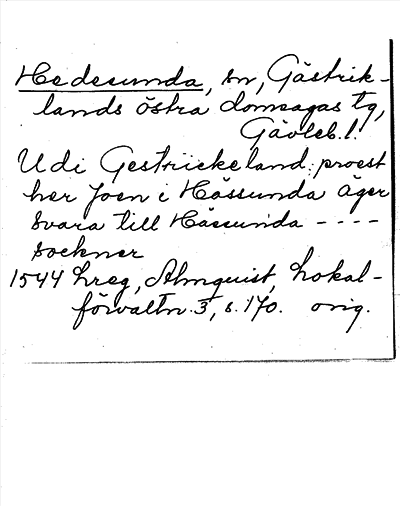 Hedesunda, sn, Gästrik-
lands östra domsagas tg,
Gävleb. l.
Udi Gestrickeland: proest
her Joen i Hässunda äger
svara till Hässunda ----
sockner
1544 hreg, Almquist, Lokal-
förvaltn. 3, s. 170. orig.